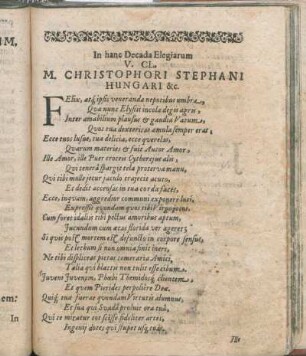 In hanc Decada Elegiarum
V. CL.
M. CHRISTOPHORI STEPHANI
HUNGARI &c.
FElix, atq; ipsis veneranda nepotibus umbra,
Qua nunc Elysii incolis
Inter amabilium plausus & gaudia Vatum,
Quos tua dexteritas amula semper erat;
Ecce tuos lusus, tua delicia, ecce querelas,
Quarum materies & fuit Autor Amor,
Ille Amor, ille Puer crocris Cythereius alis,
Qui tenerâ spargit tela proterva manu,
Qui tibi mulsit jactus jaculo trajecit acuto,
Et dedit accensas in tua corda faces,
Ecce, inquam, aggredior communi exponere luci
Expressit quondam quos tibi
Cum foret Idaliis tibi pectus amoribus aptum,
Jucundum cum atas florida ver ageret;
Si quis post mortem est defunctis in corpore sensus,
Et lethum si non omnia finit iners,
Ne tibi displiceat pietas temeraria Amici,
Talia qui blattas non tulit esse cibum.
Juvat Juvenem, Phœbi Themidisq; clientem,
Et quem Pierides perpoliere Dea.
Quiq; tua fuerat quondam Virtutis alumnus,
Et tua qui Suada probnit ora tuâ,
Qui te miratur toti scisse fideliter artes,
Ingenij dotes qui stupet usq; tuas.
IM,
em:
In